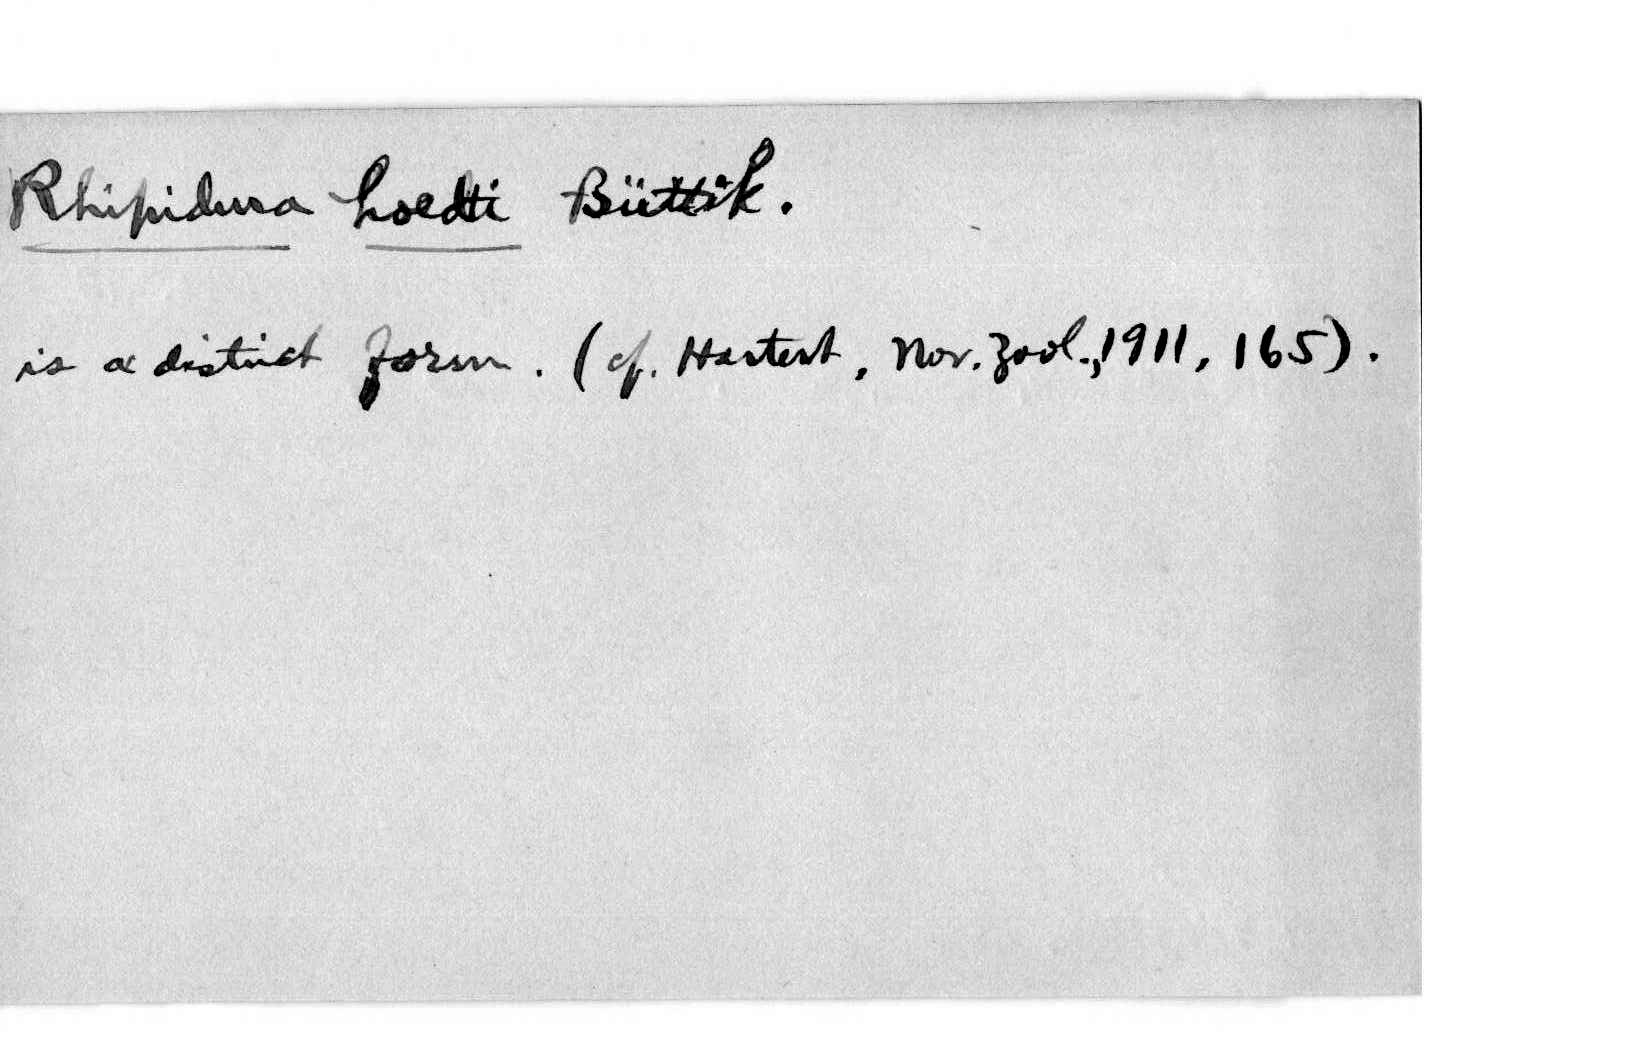 Rhipidura hoedti Büttik.
is a distinct form. (cf. Hartert, Nov. Zool., 1911, 165).